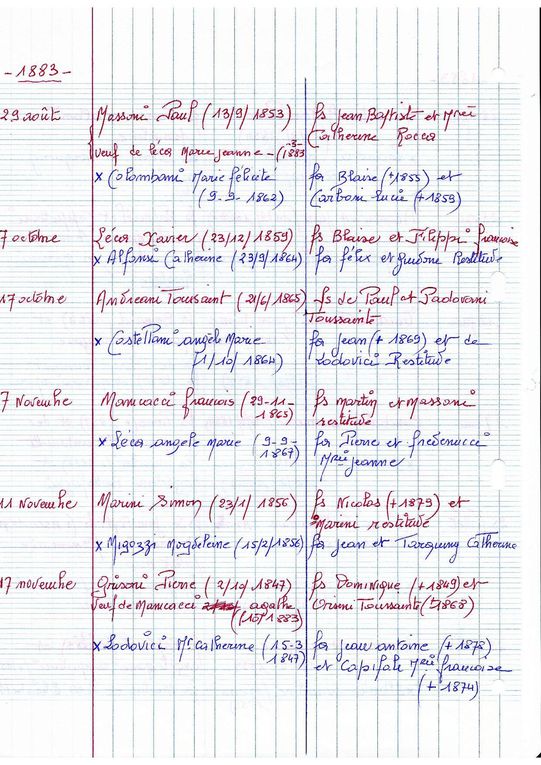 - 1883 -
29 août Massoni Paul (13/9/1853) fs jean Baptiste et Mrie
Catherine Rocca
veuf de Léca Marie jeanne - (-3-
1883
x Colombani Marie félicité fa Blaise (+1855) et
(9-9-1862) Carboni lucie (+1859)
7 octobre Léca Xavier (23/12/1859) fs Blaise et Filippi françoise
x Alfonsi Catherine (23/9/1864) fa félix et Restitude
17 octobre Andreani Toussaint (21/6/1865) fs de Paul et Padovani
Toussainte
x Castellani angèle Marie fa jean (+ 1869) et de
(1/10/1864) Lodovici Restitude
7 Novembre Manicacci françois (29-11- fs martin et Massoni
1865) restitude
x Léca angèle marie (9-9- fa Pierre et
1867) Mrie jeanne
11 Novembre Marini Simon (23/1/1856) fs Nicolas (+1879) et
Marini restitude
x Migozzi Magdeleine (15/2/1856) fa jean et Catherine
17 novembre Grisoni Pierre (2/10/1847) fs Dominique (+1849) et
veuf de Manicacci agathe Orsini Toussainte (+1868)
1883)
x Lodovici Me Catherine (15-3 fa jean antoine (+1878)
1847) et Mrie françoise
(+1874)